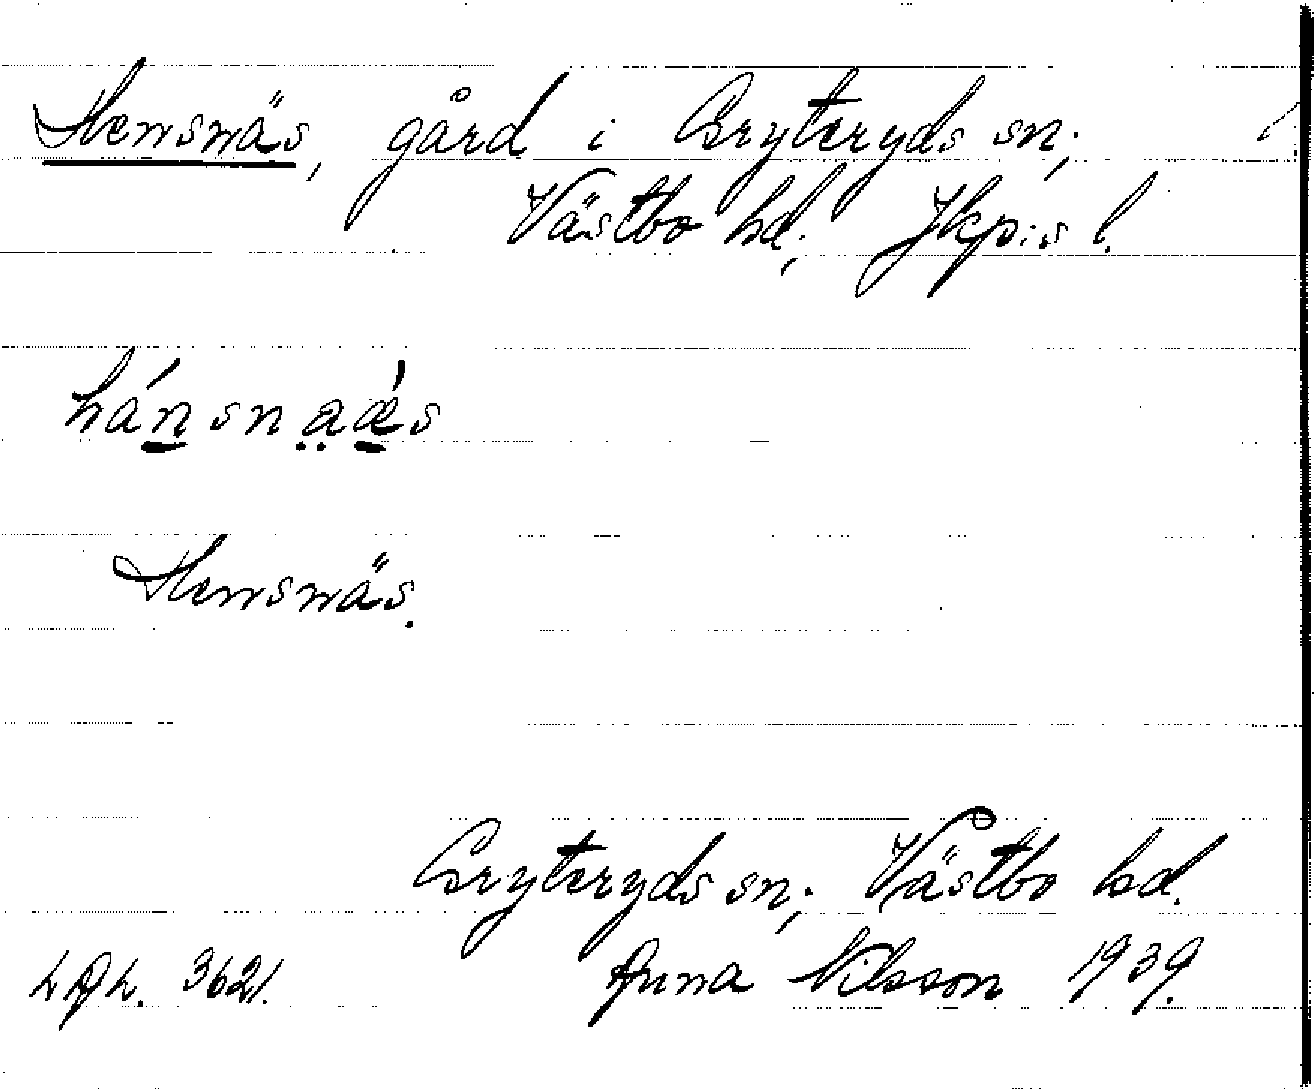 Hensnäs, gård i Gryteryds sn;
Västbo hd; Jkp:s l.
hánsnaǽs
Hensnäs.
Gryteryds sn; Västbo hd.
3621. Anna Nilsson 1939.